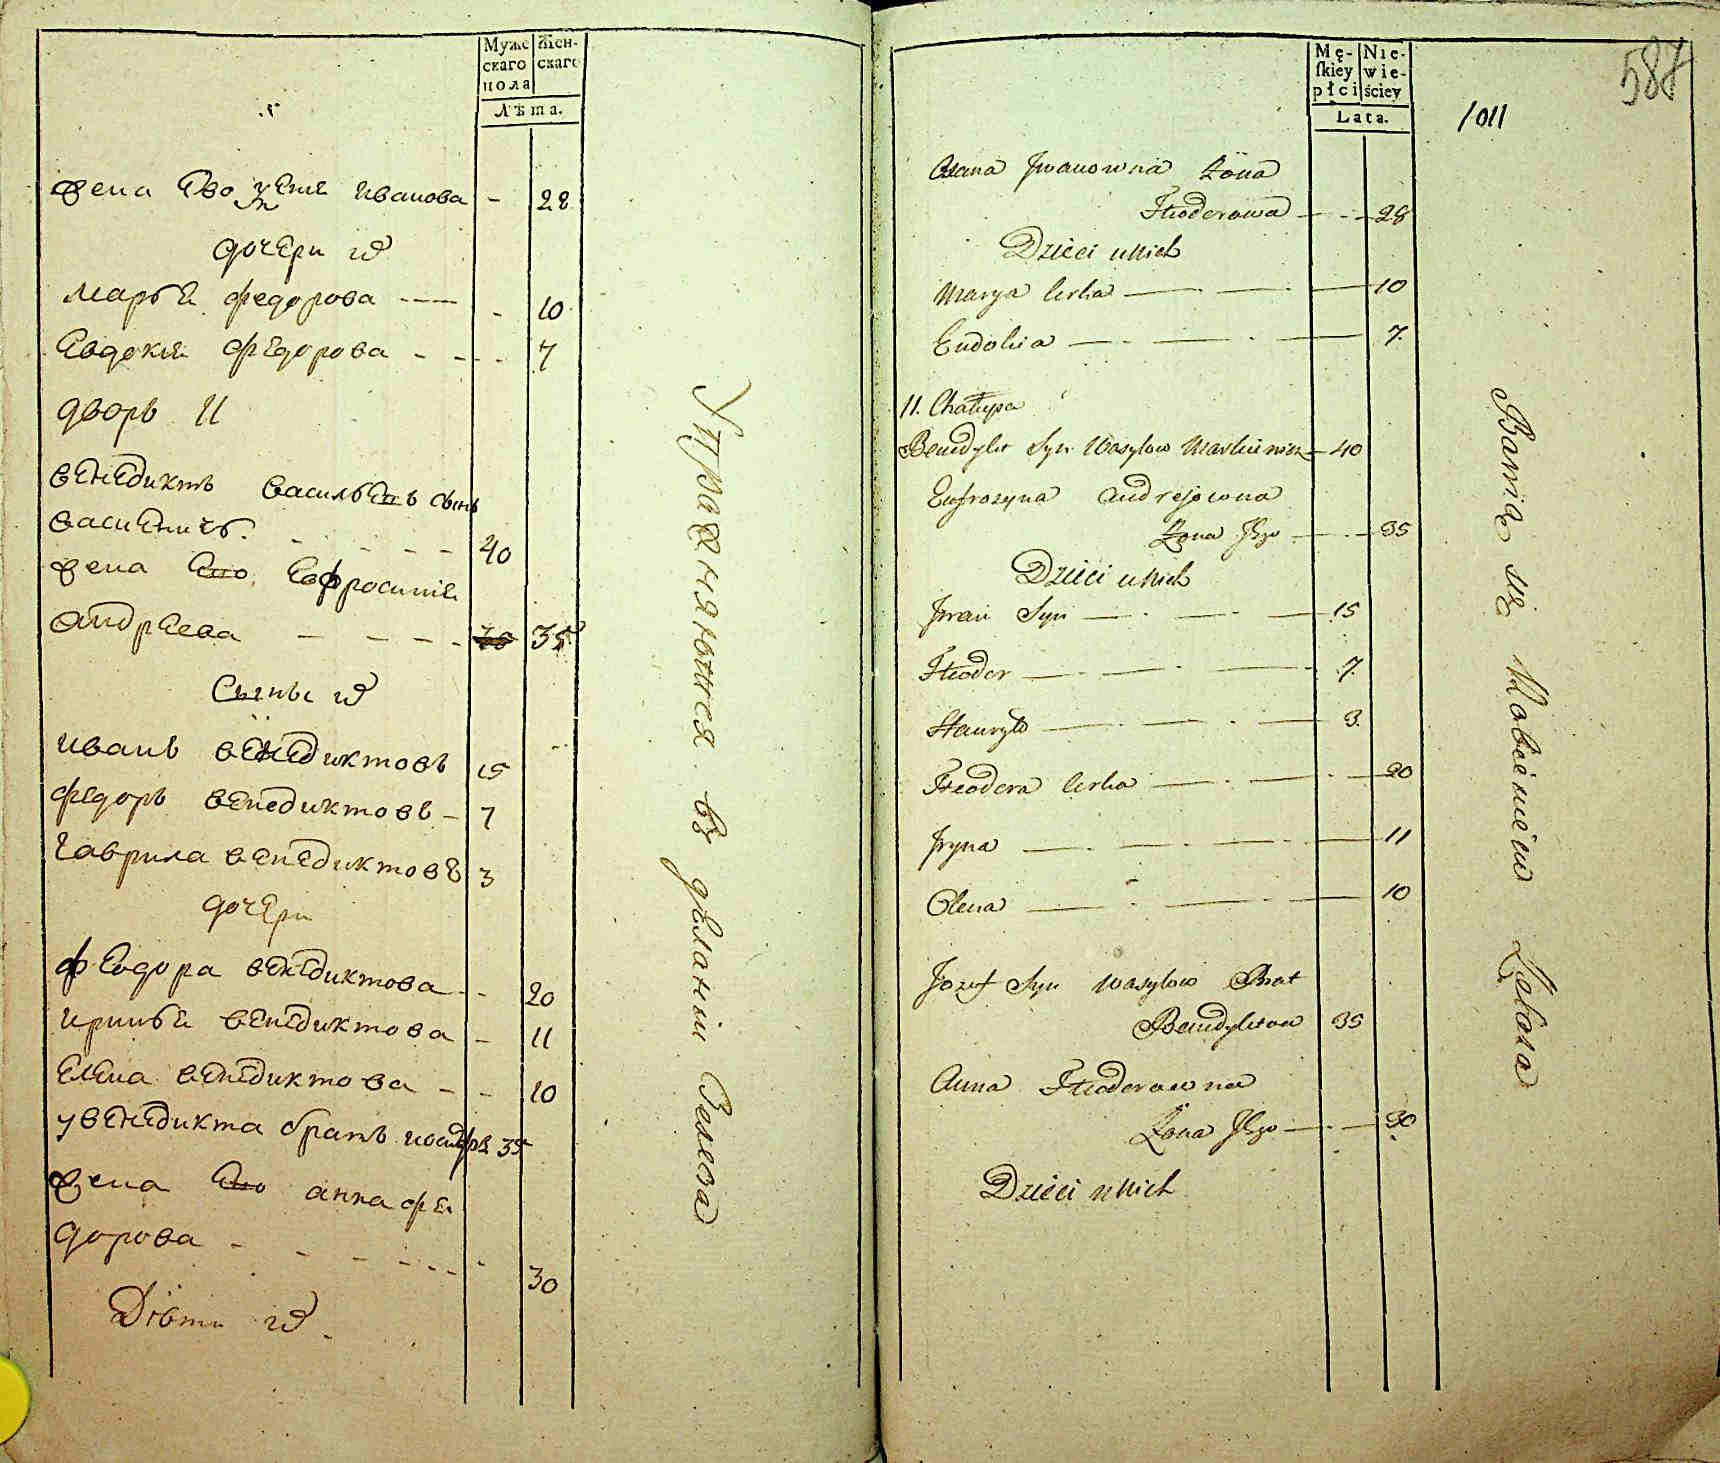 Муже
скаго
пола
Жен-
скаго
Лѣта.
жена Иванова - 28
дочери их
Марья федорова - 10
Евдокия федорова - - - 7
дворъ 11
венедиктъ васильевъ сынъ
- - - - 40
жена его Евфросиния
андреева - - - - 35
Сыны их
иванъ венедиктовъ 15
федоръ венедиктовъ - 7
гаврила венедиктовъ 3
дочери
феодора венедиктова - - 20
ирина венедиктова - 11
елена венедиктова - - 10
у венедикта братъ иосифъ 35
жена его анна фе
дорова - - - - - 30
Дѣти их
Упражняются въ деланіи Зелеза
587
1011
Mę-
skiey
płci
Nie-
wie-
ściey
Lata.
Iwanowna Żona
Fteodorowa - - - 28
Dzieci u Nich
Marya Corka — 10
Eudokia — 7.
11. Chałupa
Benedykt Syn Wasylow — 40
Eufrozyna Andrejowna
Żona Jego — 35
Dzieci u Nich
Jwan Syn — 15
Fteodor — 7.
Hauryło — 3.
Fteodora Corka — 20
Jryna — 11
Olena — 10
Jozef Syn Wasylow Brat
Benedyktow 35
Anna Fteodorowna
Żona Jego — 30
Dzieci u Nich
Bawią się Robieniem Żelaza